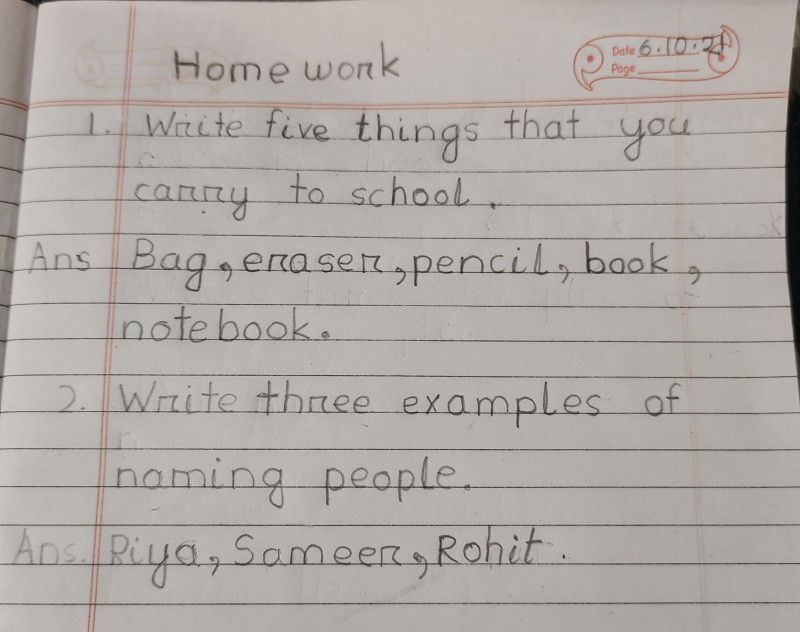 Homework
Date 6.10.21
Page
1. Write five things that you
carry to school.
Ans Bag, eraser, pencil, book,
notebook.
2. Write three examples of
naming people.
Ans. Riya, Sameer, Rohit.